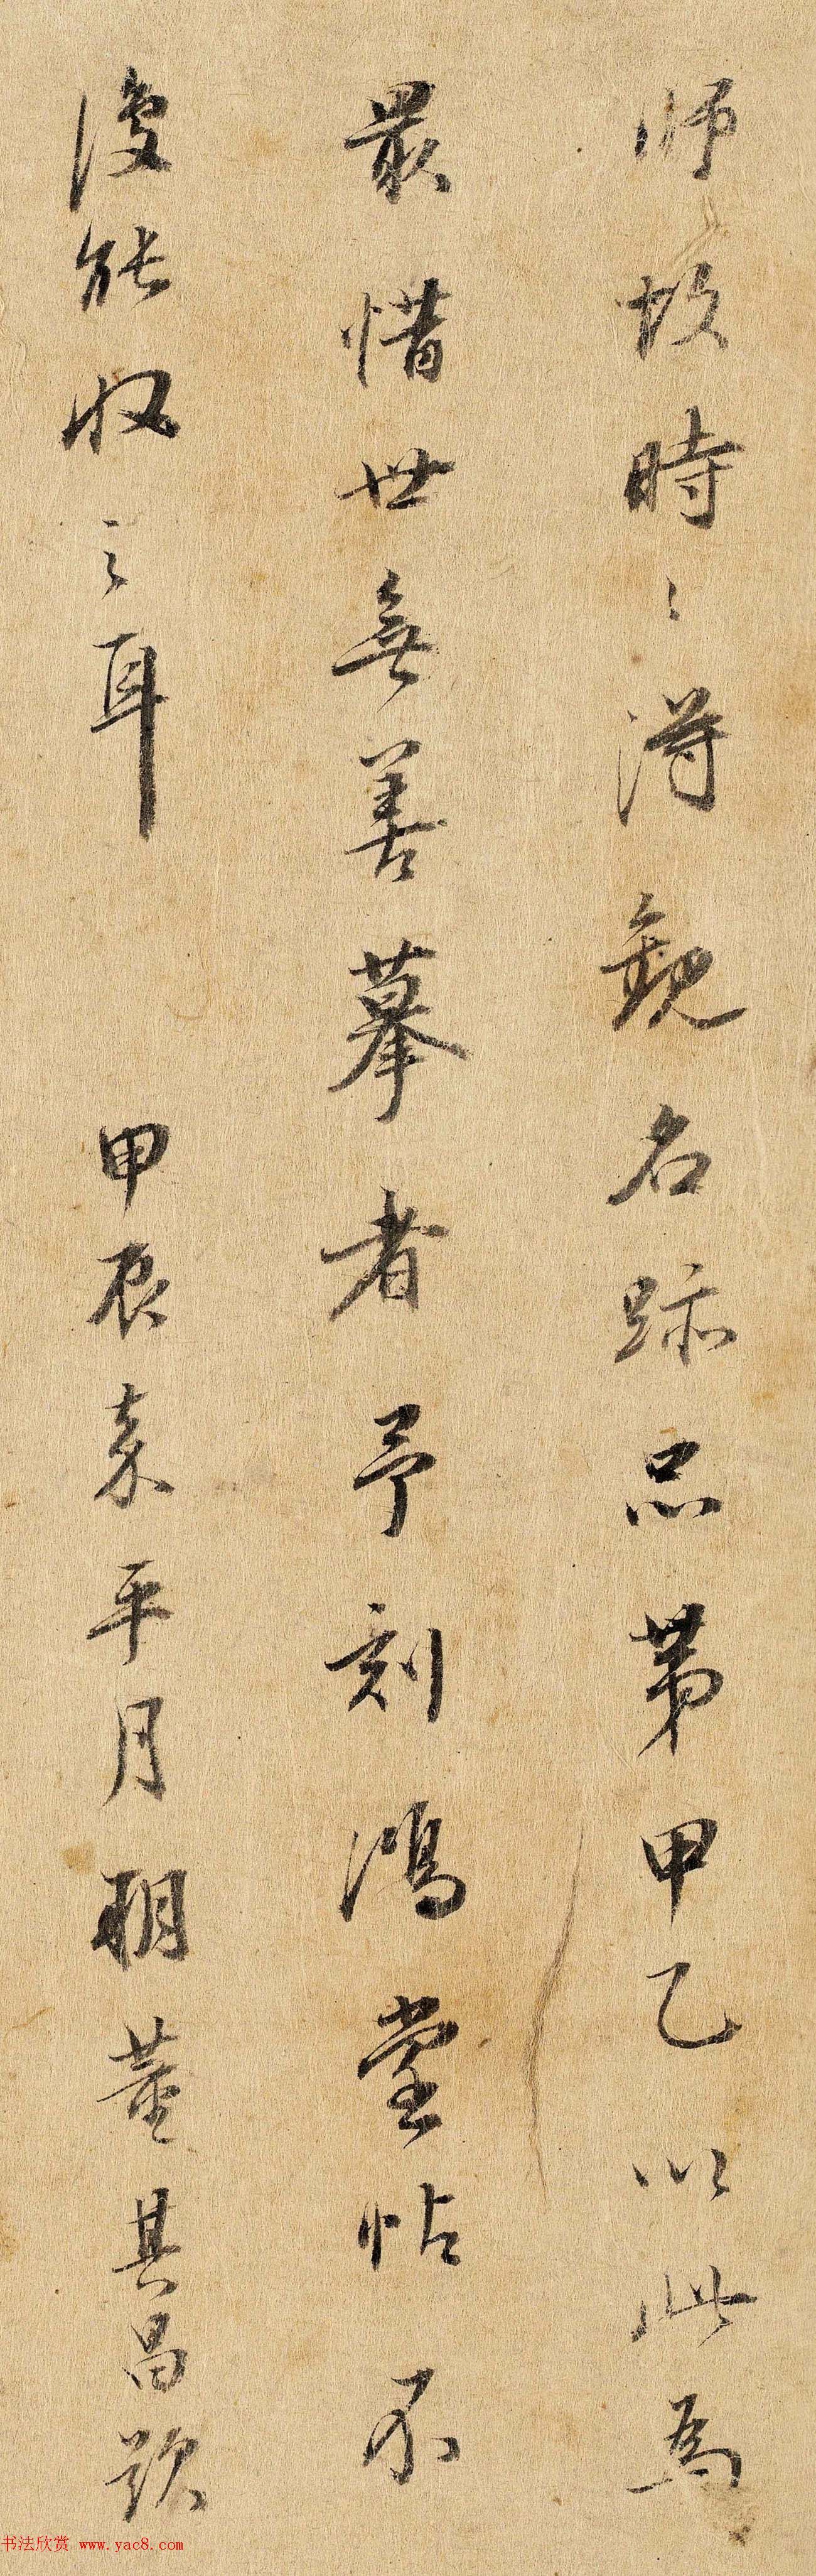 師故時〻得觀名跡品第甲乙以此爲
最惜世無善摹者予刻鴻堂帖不
復能收之耳 甲辰來平月朔董其昌題
书法欣赏 www.yac8.com